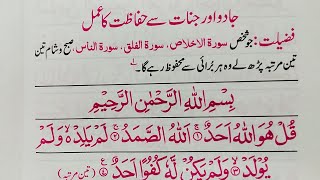 جادو اور جنات سے حفاظت کا عمل
فضیلت: جو شخص سورۃ الاخلاص، سورۃ الفلق، سورۃ الناس، صبح و شام تین
تین مرتبہ پڑھ لے وہ ہر برائی سے محفوظ رہے گا۔ ؎۱
بِسْمِ اللّٰهِ الرَّحْمٰنِ الرَّحِيْمِ
قُلْ هُوَ اللّٰهُ اَحَدٌ ۝۱ اَللّٰهُ الصَّمَدُ ۝۲ لَمْ يَلِدْ ۙ وَلَمْ
يُوْلَدْ ۝۳ وَلَمْ يَكُنْ لَّهٗ كُفُوًا اَحَدٌ ۝۴ (تین مرتبہ)